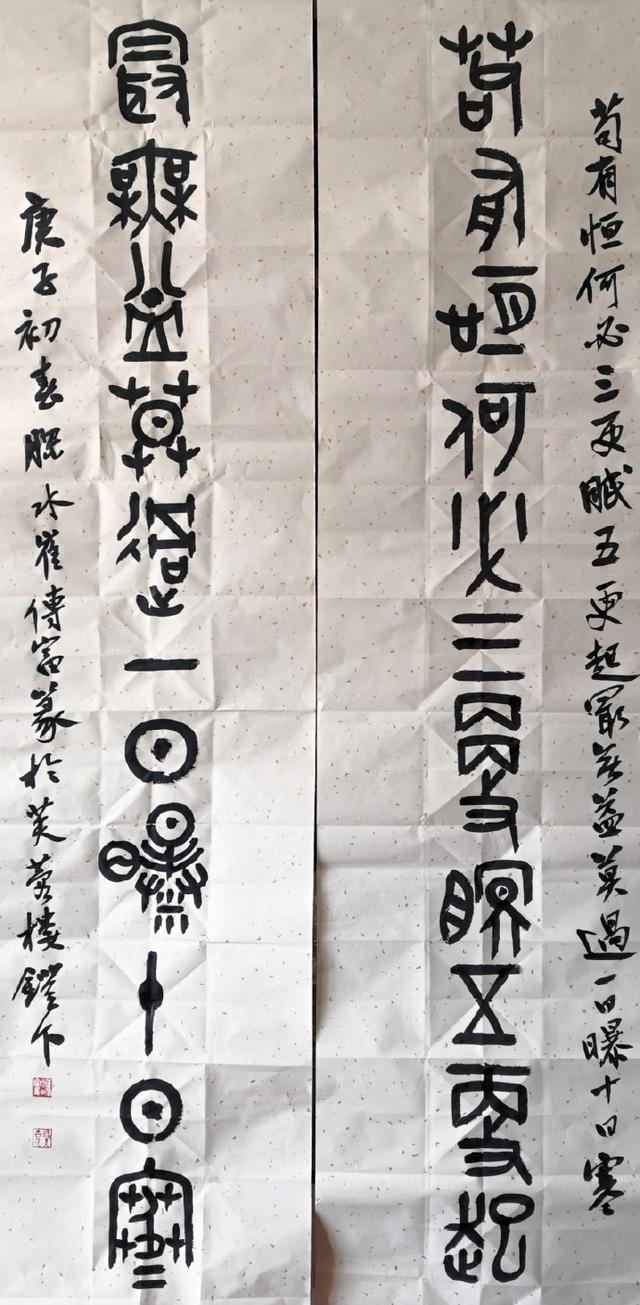 苟有恒何必三更眠五更起最無益莫過一日曝十日寒
苟有恒何必三更眠五更起
最無益莫過一日曝十日寒
庚子初春水崔傳富篆於芙蓉樓鐙下